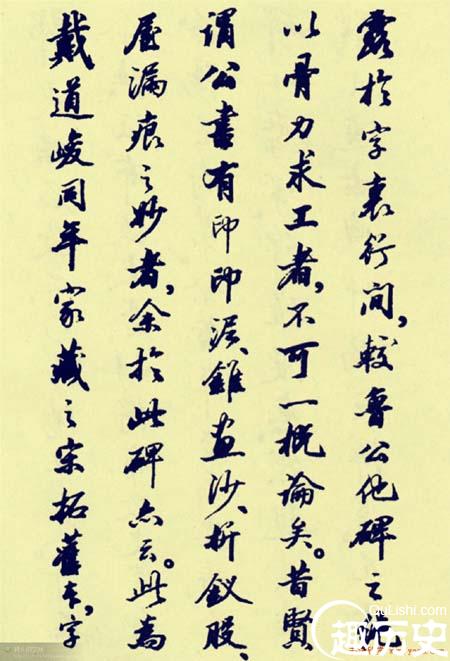 露於字裏行間,較魯公他碑之
以骨力求工者,不可一概論矣。昔賢
謂公書有印印泥、錐畫沙、折釵股、
屋漏痕之妙者,余於此碑亦云。此為
戴道峻同年家藏之宋拓舊本,字
QuLishi.com
趣历史